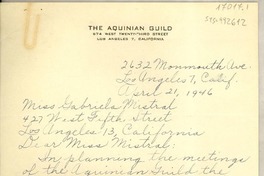 17014.1
THE AQUINIAN GUILD
974 WEST TWENTY-THIRD STREET
LOS ANGELES 7, CALIFORNIA
2632 Monmouth Ave.
Los Angeles 7, Calif.
April 21, 1946
Miss Gabriela Mistral
427 West Fifth Street
Los Angeles 13, California
Dear Miss Mistral:
In planning the meetings
of the Aquinian Guild the